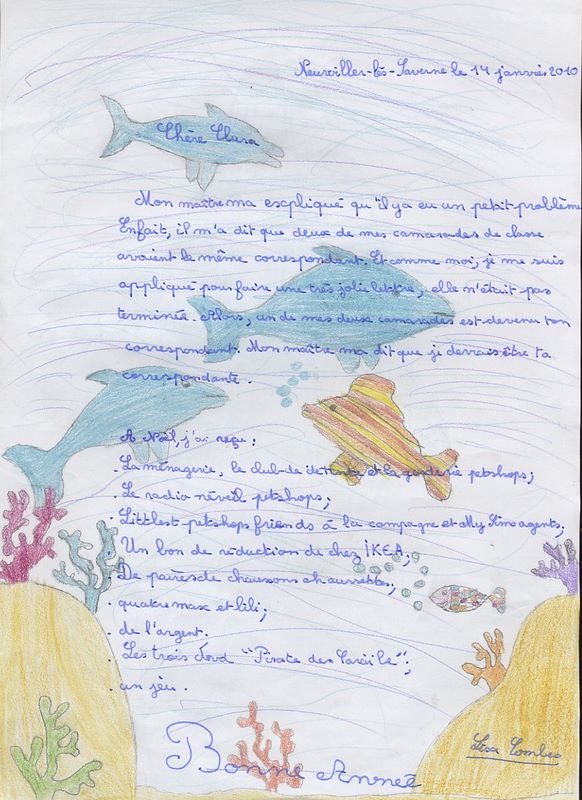 Neuwiller-lès-Saverne le 14 janvier 2010
Chère Clara
Mon maître ma escpliqué qu'il ya eu un petit problème
Enfait, il m'a dit que deux de mes camarades de classe
avaient le même correspondant. Et comme moi, je me suis
appliqué pour faire une très jolie lettre, elle n'était pas
terminée. Alors, un de mes deux camarades est devenu ton
correspondant. Mon maître ma dit que je devrais être ta
correspondante.
A Noël, j'ai reçu :
. La ménagerie, le club de détente et la garderie petshops;
. Le radio réveil petshops;
. Littlest petshops friends à la campagne et My Sims agents;
. Un bon de réduction du chez IKEA;
. De paires de chaussons chaussettes;
. quatre max et lili;
. de l'argent.
. Les trois dvd "Pirate des Caraïbe";
. un jeu.
Bonne Année
Lisa Combes